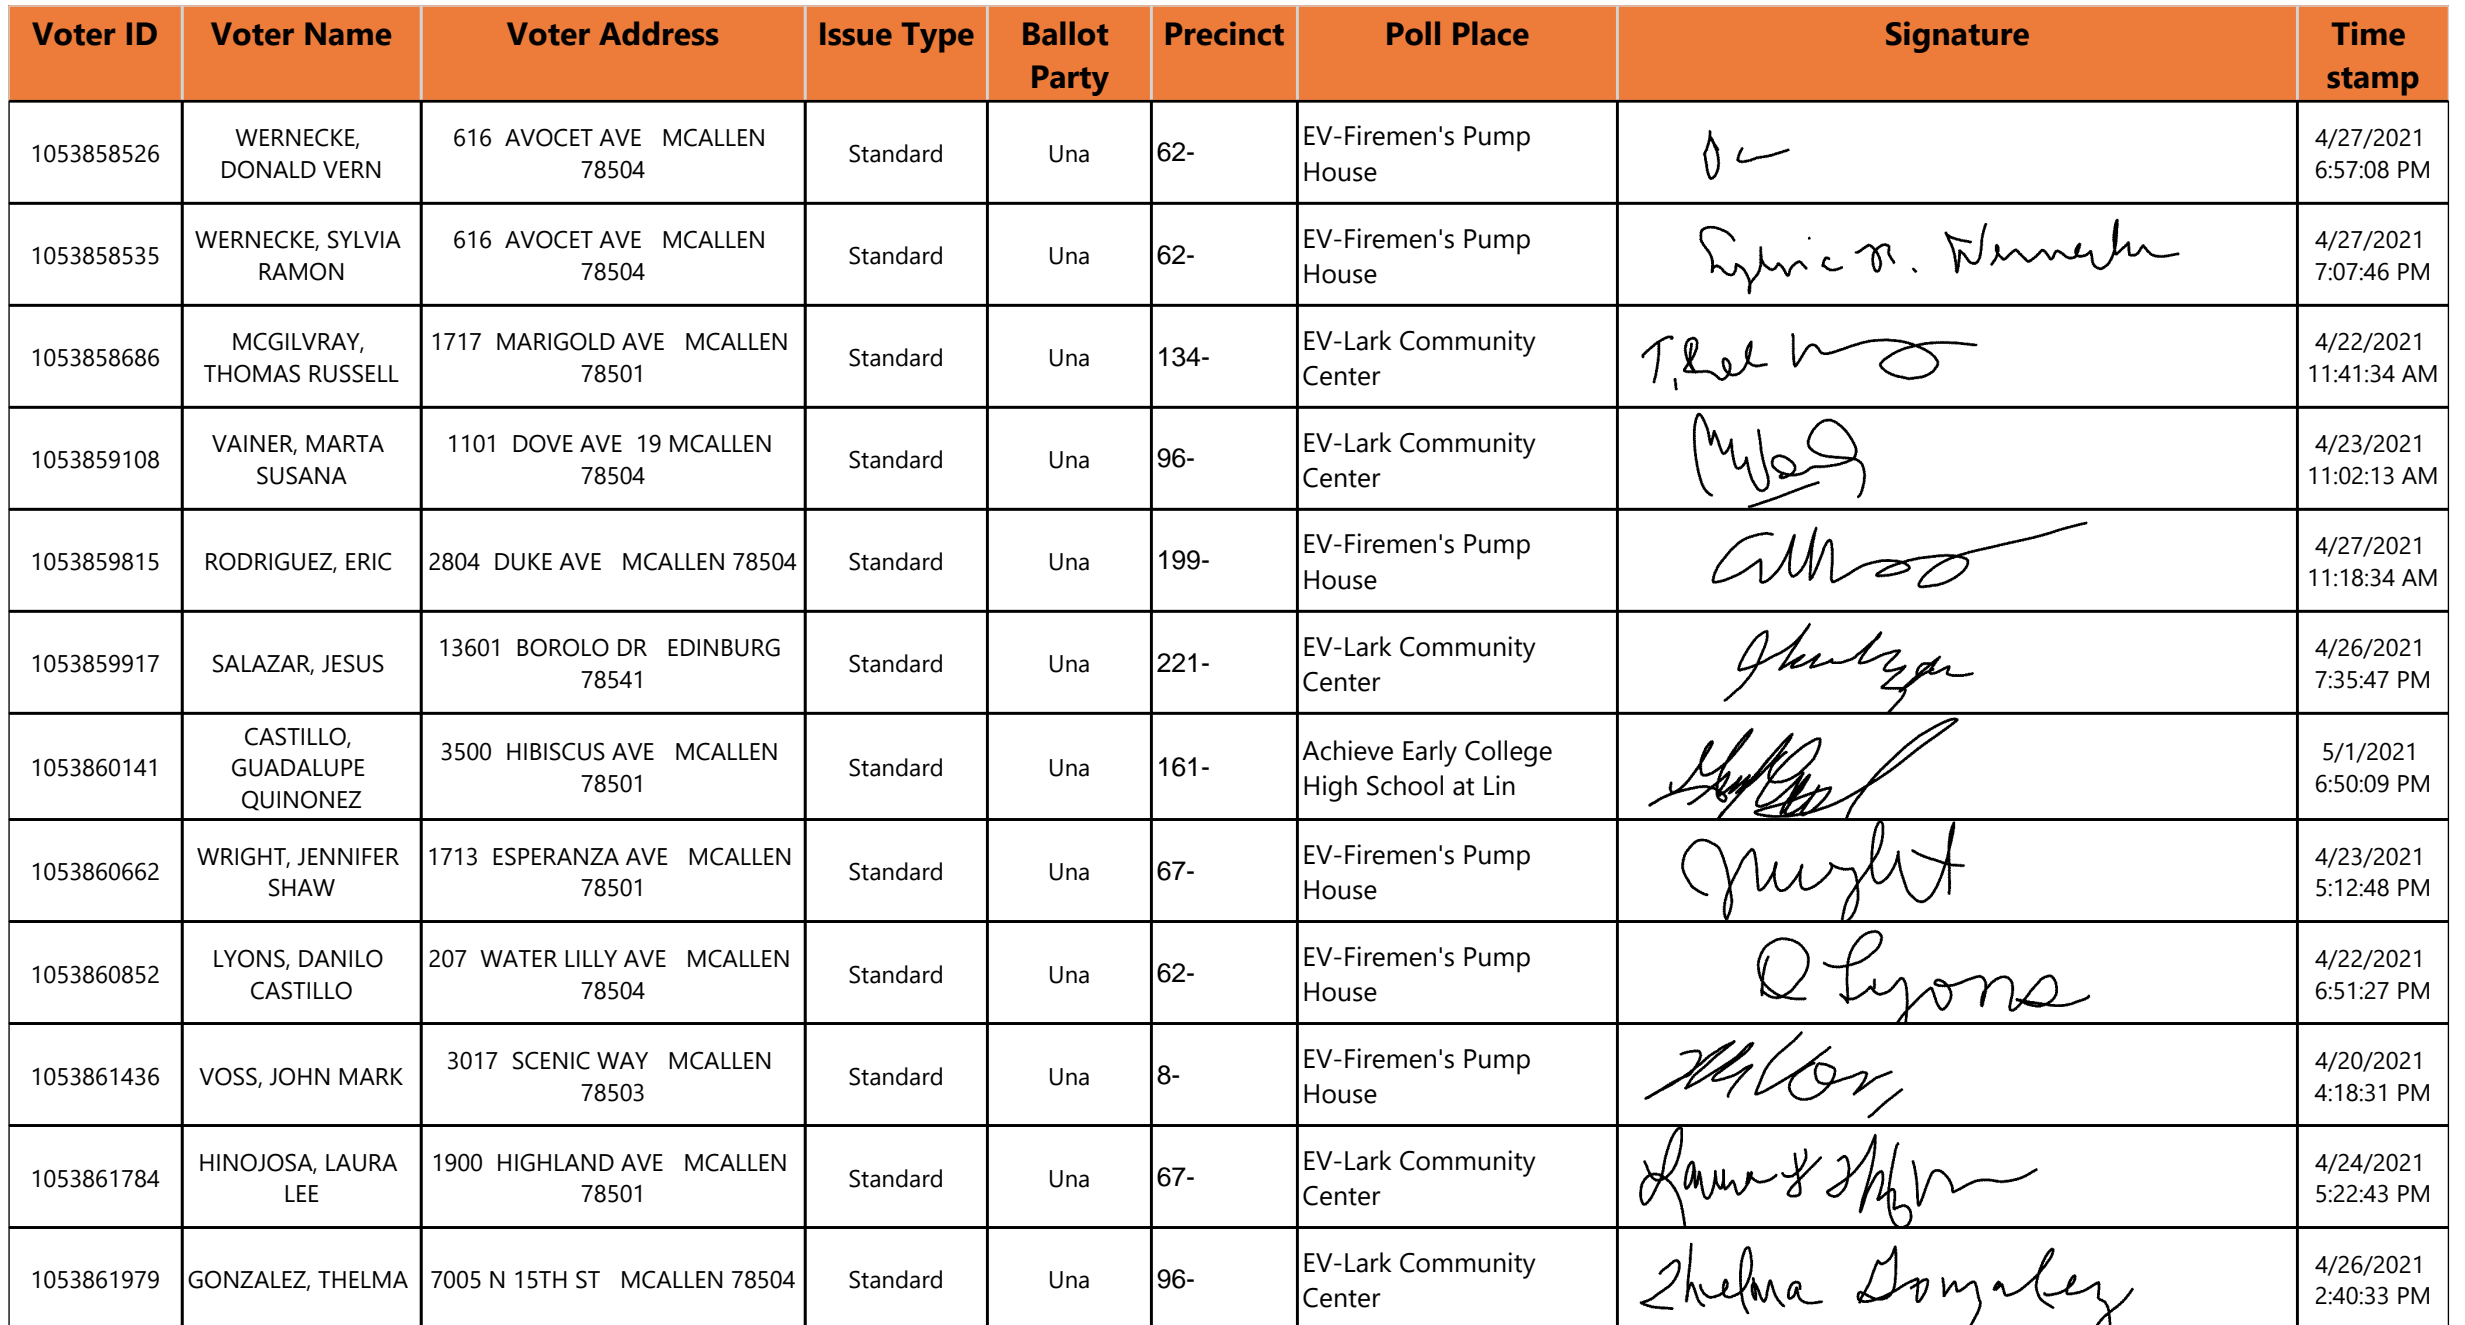 Voter ID Voter Name Voter Address Issue Type Ballot Party Precinct Poll Place Signature Time stamp
1053858526 WERNECKE, DONALD VERN 616 AVOCET AVE MCALLEN 78504 Standard Una 62- EV-Firemen's Pump House 4/27/2021 6:57:08 PM
1053858535 WERNECKE, SYLVIA RAMON 616 AVOCET AVE MCALLEN 78504 Standard Una 62- EV-Firemen's Pump House Sylvia R. Wernecke 4/27/2021 7:07:46 PM
1053858686 MCGILVRAY, THOMAS RUSSELL 1717 MARIGOLD AVE MCALLEN 78501 Standard Una 134- EV-Lark Community Center 4/22/2021 11:41:34 AM
1053859108 VAINER, MARTA SUSANA 1101 DOVE AVE 19 MCALLEN 78504 Standard Una 96- EV-Lark Community Center 4/23/2021 11:02:13 AM
1053859815 RODRIGUEZ, ERIC 2804 DUKE AVE MCALLEN 78504 Standard Una 199- EV-Firemen's Pump House 4/27/2021 11:18:34 AM
1053859917 SALAZAR, JESUS 13601 BOROLO DR EDINBURG 78541 Standard Una 221- EV-Lark Community Center 4/26/2021 7:35:47 PM
1053860141 CASTILLO, GUADALUPE QUINONEZ 3500 HIBISCUS AVE MCALLEN 78501 Standard Una 161- Achieve Early College High School at Lin 5/1/2021 6:50:09 PM
1053860662 WRIGHT, JENNIFER SHAW 1713 ESPERANZA AVE MCALLEN 78501 Standard Una 67- EV-Firemen's Pump House JWright 4/23/2021 5:12:48 PM
1053860852 LYONS, DANILO CASTILLO 207 WATER LILLY AVE MCALLEN 78504 Standard Una 62- EV-Firemen's Pump House D Lyons 4/22/2021 6:51:27 PM
1053861436 VOSS, JOHN MARK 3017 SCENIC WAY MCALLEN 78503 Standard Una 8- EV-Firemen's Pump House 4/20/2021 4:18:31 PM
1053861784 HINOJOSA, LAURA LEE 1900 HIGHLAND AVE MCALLEN 78501 Standard Una 67- EV-Lark Community Center Laura 4/24/2021 5:22:43 PM
1053861979 GONZALEZ, THELMA 7005 N 15TH ST MCALLEN 78504 Standard Una 96- EV-Lark Community Center Thelma Gonzalez 4/26/2021 2:40:33 PM